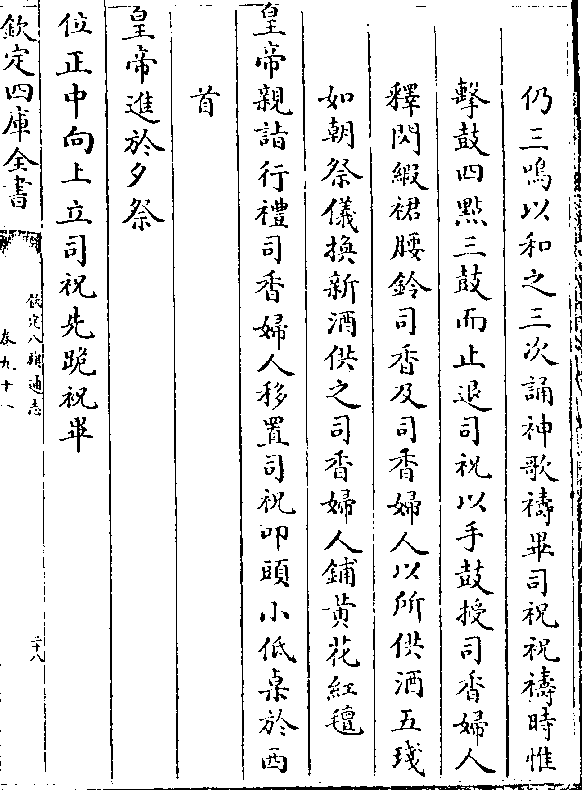 仍三鳴以和之三次誦神歌禱畢司祝祝禱時惟
擊鼓四點三鼓而止退司祝以手鼓授司香婦人
釋閃緞裙腰鈴司香及司香婦人以所供酒五琖
如朝祭儀換新酒供之司香婦人鋪黄花紅氊
皇帝親詣行禮司香婦人移置司祝叩頭小低桌於西
首
皇帝進於夕祭
位正中向上立司祝先跪祝畢
欽定四庫全書
欽定八旗通志
卷九十一
二十八